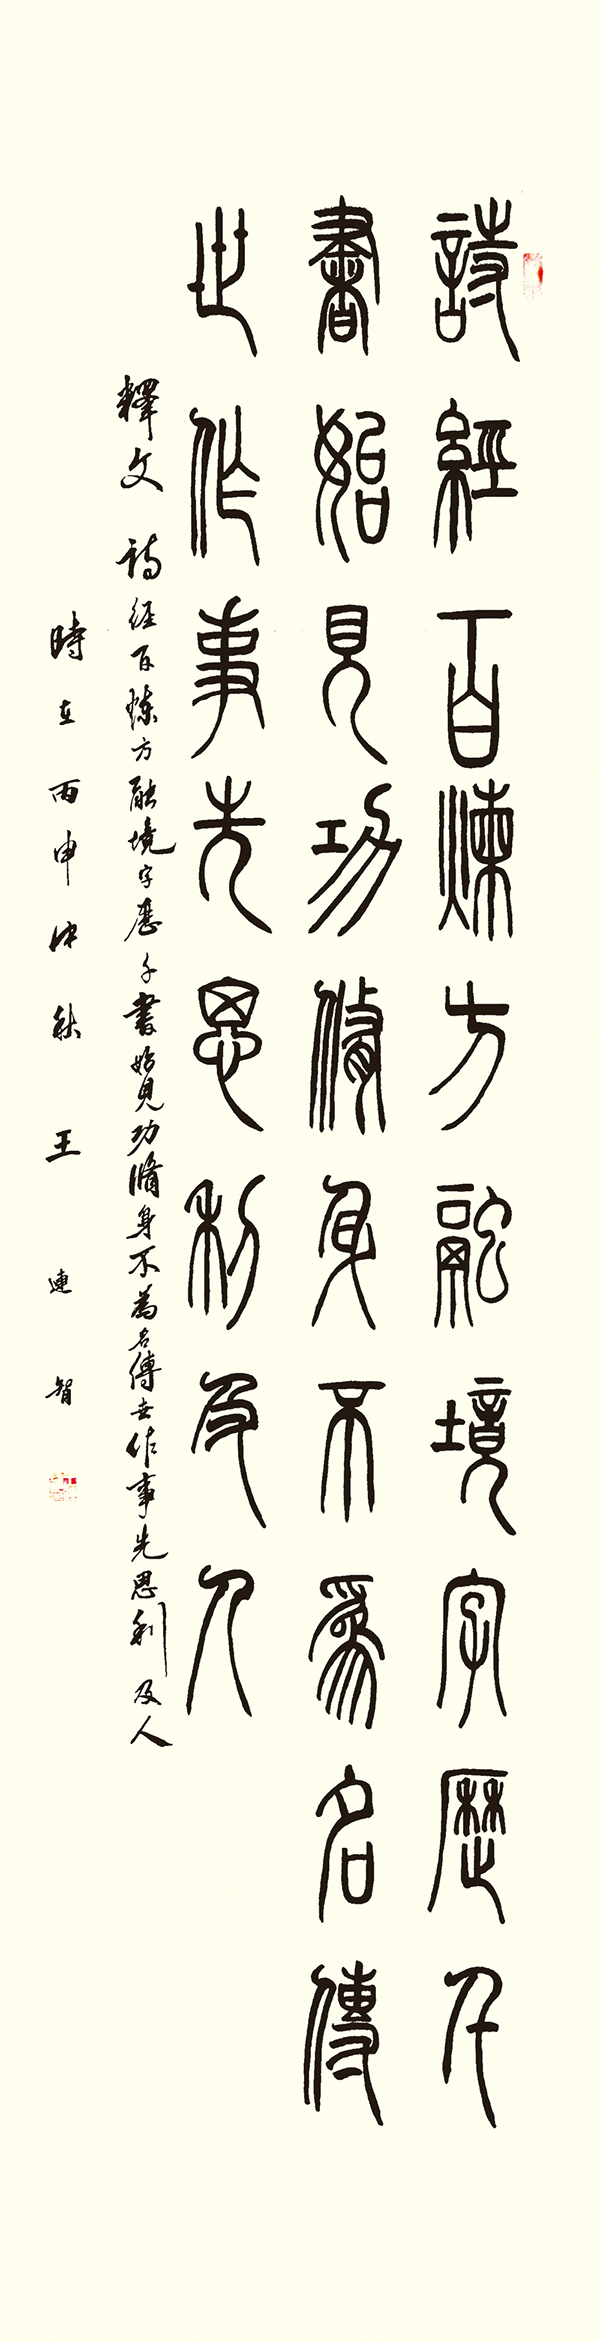 詩經百煉方融境字歷千
書始見功脩身不爲名傳
世作事先思利及人
釋文 詩經百煉方融境字歷千書始見功脩身不為名傳世作事先思利及人
時在丙申仲秋 王連智